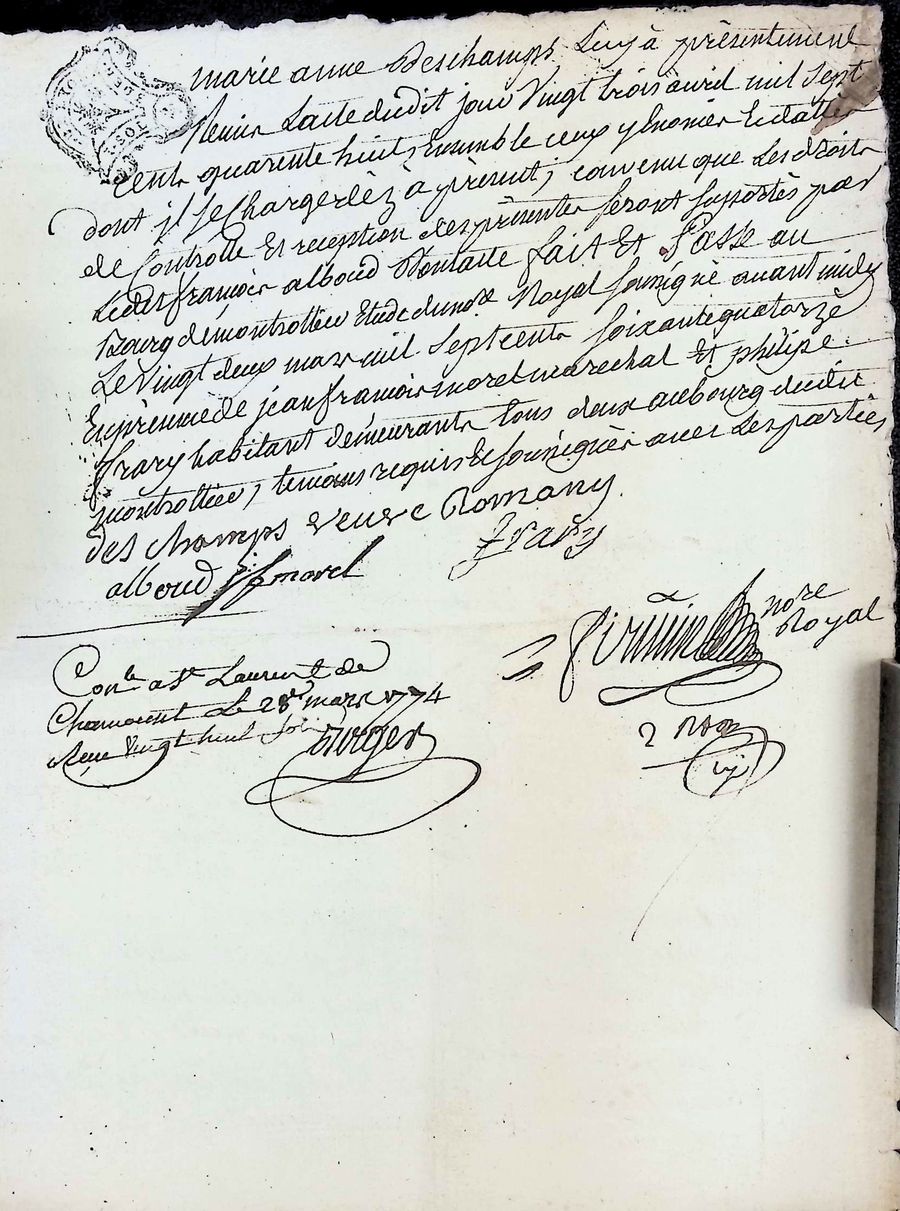 marie anne Deschamps Luy à présentement
Remis L'acte dudit jour Vingt trois avril mil Sept
Cents quarente huit, Ensemble ceux y Enoncer Et datter
dont jl Se Charge dèz à prèsent, convenu que Les droits
de Controlle Et reception des prèsentes Seront Suportès par
Ledit françois alboud Romans fait Et Passé au
Bourg de montrollier Etude du nore Royal Sousigné avant midy
Le Vingt deux mars mil Sept cents Soixante quatorzé
En prèsence de jean françois morel marechal Et philipe
frary habitant demeurants tous deux au bourg dudit
montrollier, temoins requis Et Sousignèr avec Les partiès
des champs veuve Romany
frary
alboud jf morel
nore
Royal
Conlé a st Laurent de
Chamousset Le 28e mars 1774
Reçu Vingt huit sols
burger
2